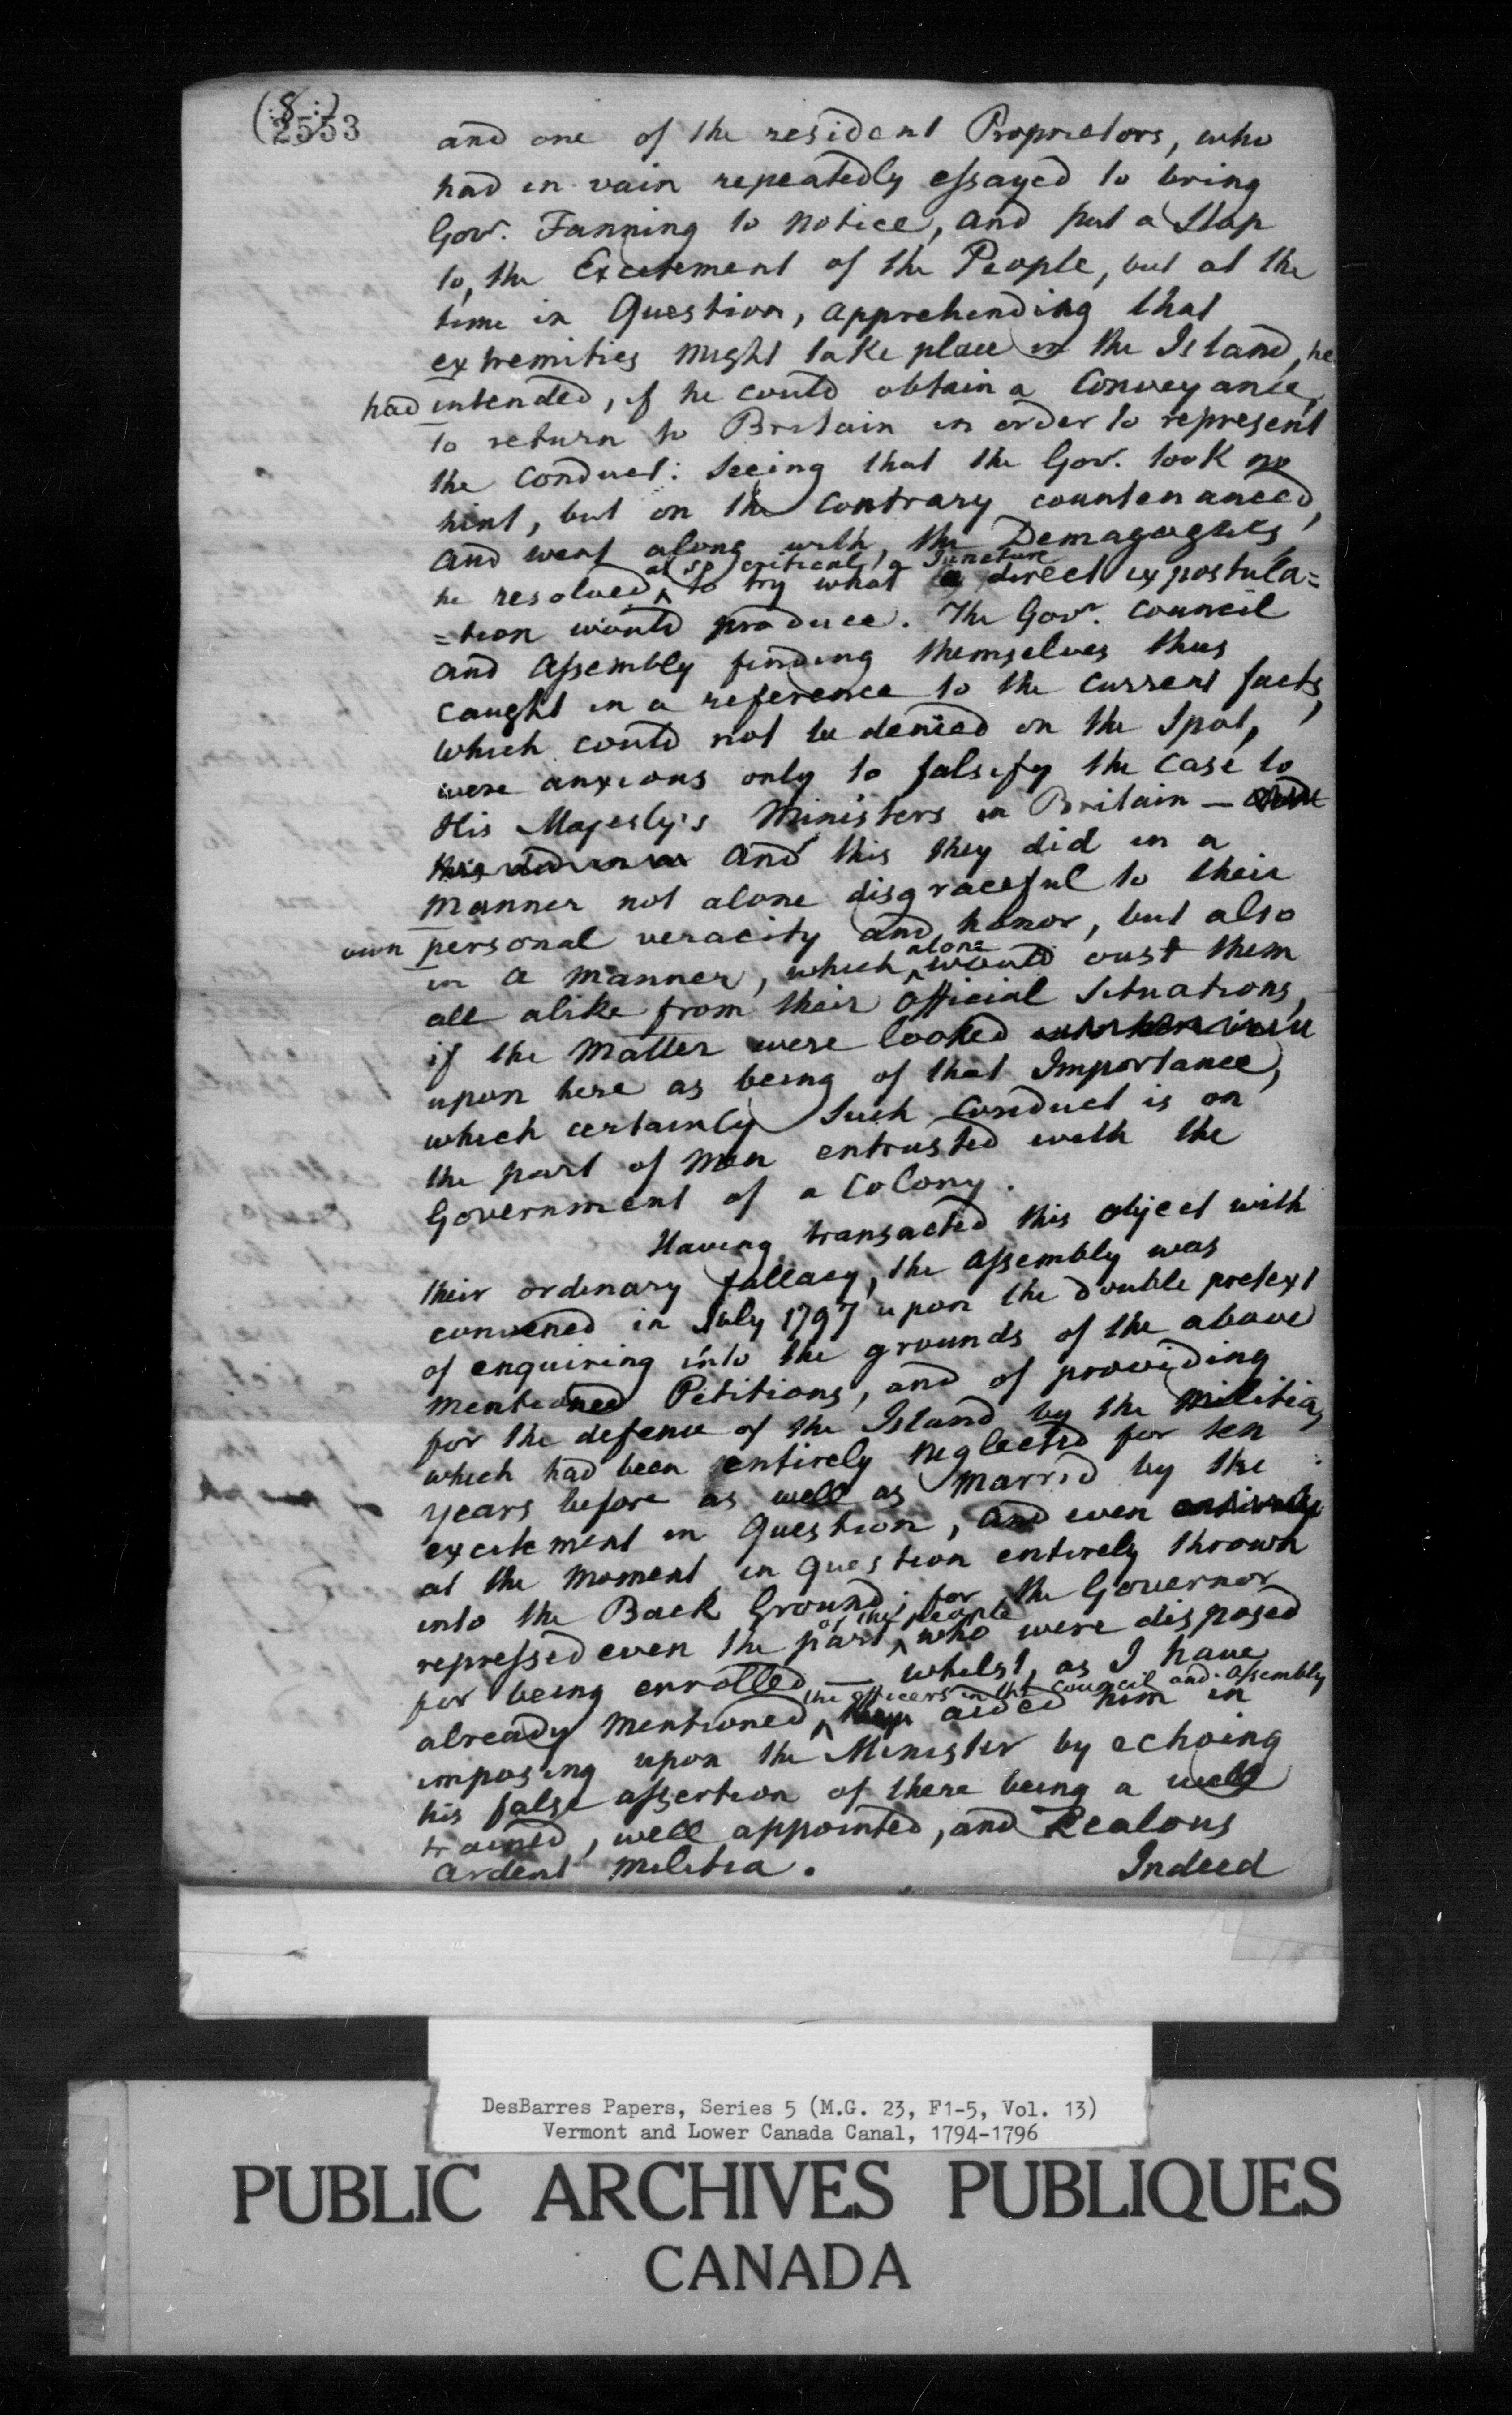 (:8:)
2553
and one of the resident Proprietors, who
had in vain repeatedly essayed to bring
Gov.r Fanning to notice, and put a Stop
to, the Excitement of the People, but at the
time in Question, apprehending that
extremities might take place in the Island, he
had intended, if he could obtain a Conveyance,
to return to Britain in order to represent
the Conduct: Seeing that the Gov.r took no
hint, but on the Contrary countenanced,
and went along with, the Demagogues,
at so critical a Juncture
he resolved ^ to try what a direct expostula=
=tion would produce. The Gov.r Council
and Assembly finding themselves thus
caught in a reference to the current facts,
which could not be denied on the Spot,
were anxious only to falsify the Case to
His Majesty's Ministers in Britain —
this and this they did in a
manner not alone disgraceful to their
own personal veracity and honor, but also
alone
in a manner, which ^ would oust them
all alike from their official Situations,
if the Matter were looked
upon here as being of that Importance,
which certainly Such Conduct is on
the part of Men entrusted with the
Government of a Colony.
Having transacted this object with
their ordinary fallacy, the Assembly was
convened in July 1797 upon the double pretext
of enquiring into the grounds of the above
mentioned Petitions, and of providing
for the defense of the Island by the Militia,
which had been entirely neglected for ten
years before as well as marred by the
excitement in Question, and even entirely
at the Moment in question entirely thrown
into the Back Ground; for the Governor
of the people
repressed even the part ^ who were disposed
for being enrolled — whilst, as I have
the officers in the Council and Assembly
already mentioned, ^ they aided him in
imposing upon the Minister by echoing
his false assertion of there being a well
trained, well appointed, and Zealous
ardent militia.
Indeed
DesBarres Papers, Series 5 (M.G. 23, F1-5, Vol. 13)
Vermont and Lower Canada Canal, 1794-1796
PUBLIC ARCHIVES PUBLIQUES
CANADA